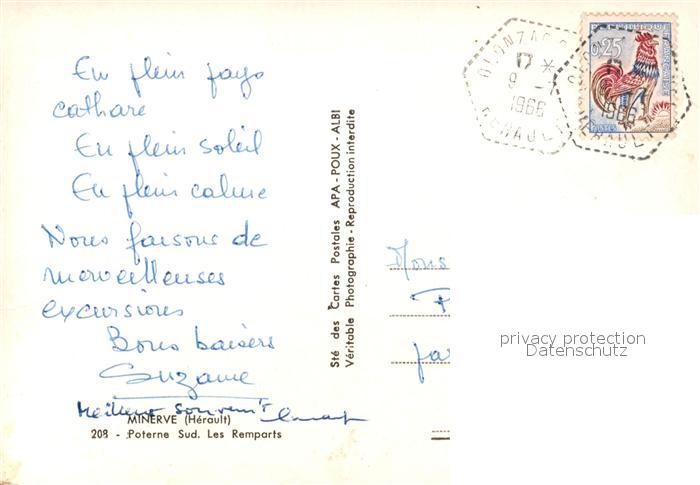 En plein pays
cathare
En plein soleil
En plein calme
Nous faisons de
merveilleuses
excursions
Bons baisers
Suzanne
Meilleur souvenir
MINERVE (Hérault)
208 - Poterne Sud. Les Remparts
Sté des Cartes Postales APA-POUX-ALBI
Véritable Photographie - Reproduction interdite
OLONZAC
17 *
9 - 7
1966
HERAULT
0,25
1966
HERAULT
POSTES
Mons
privacy protection
Datenschutz